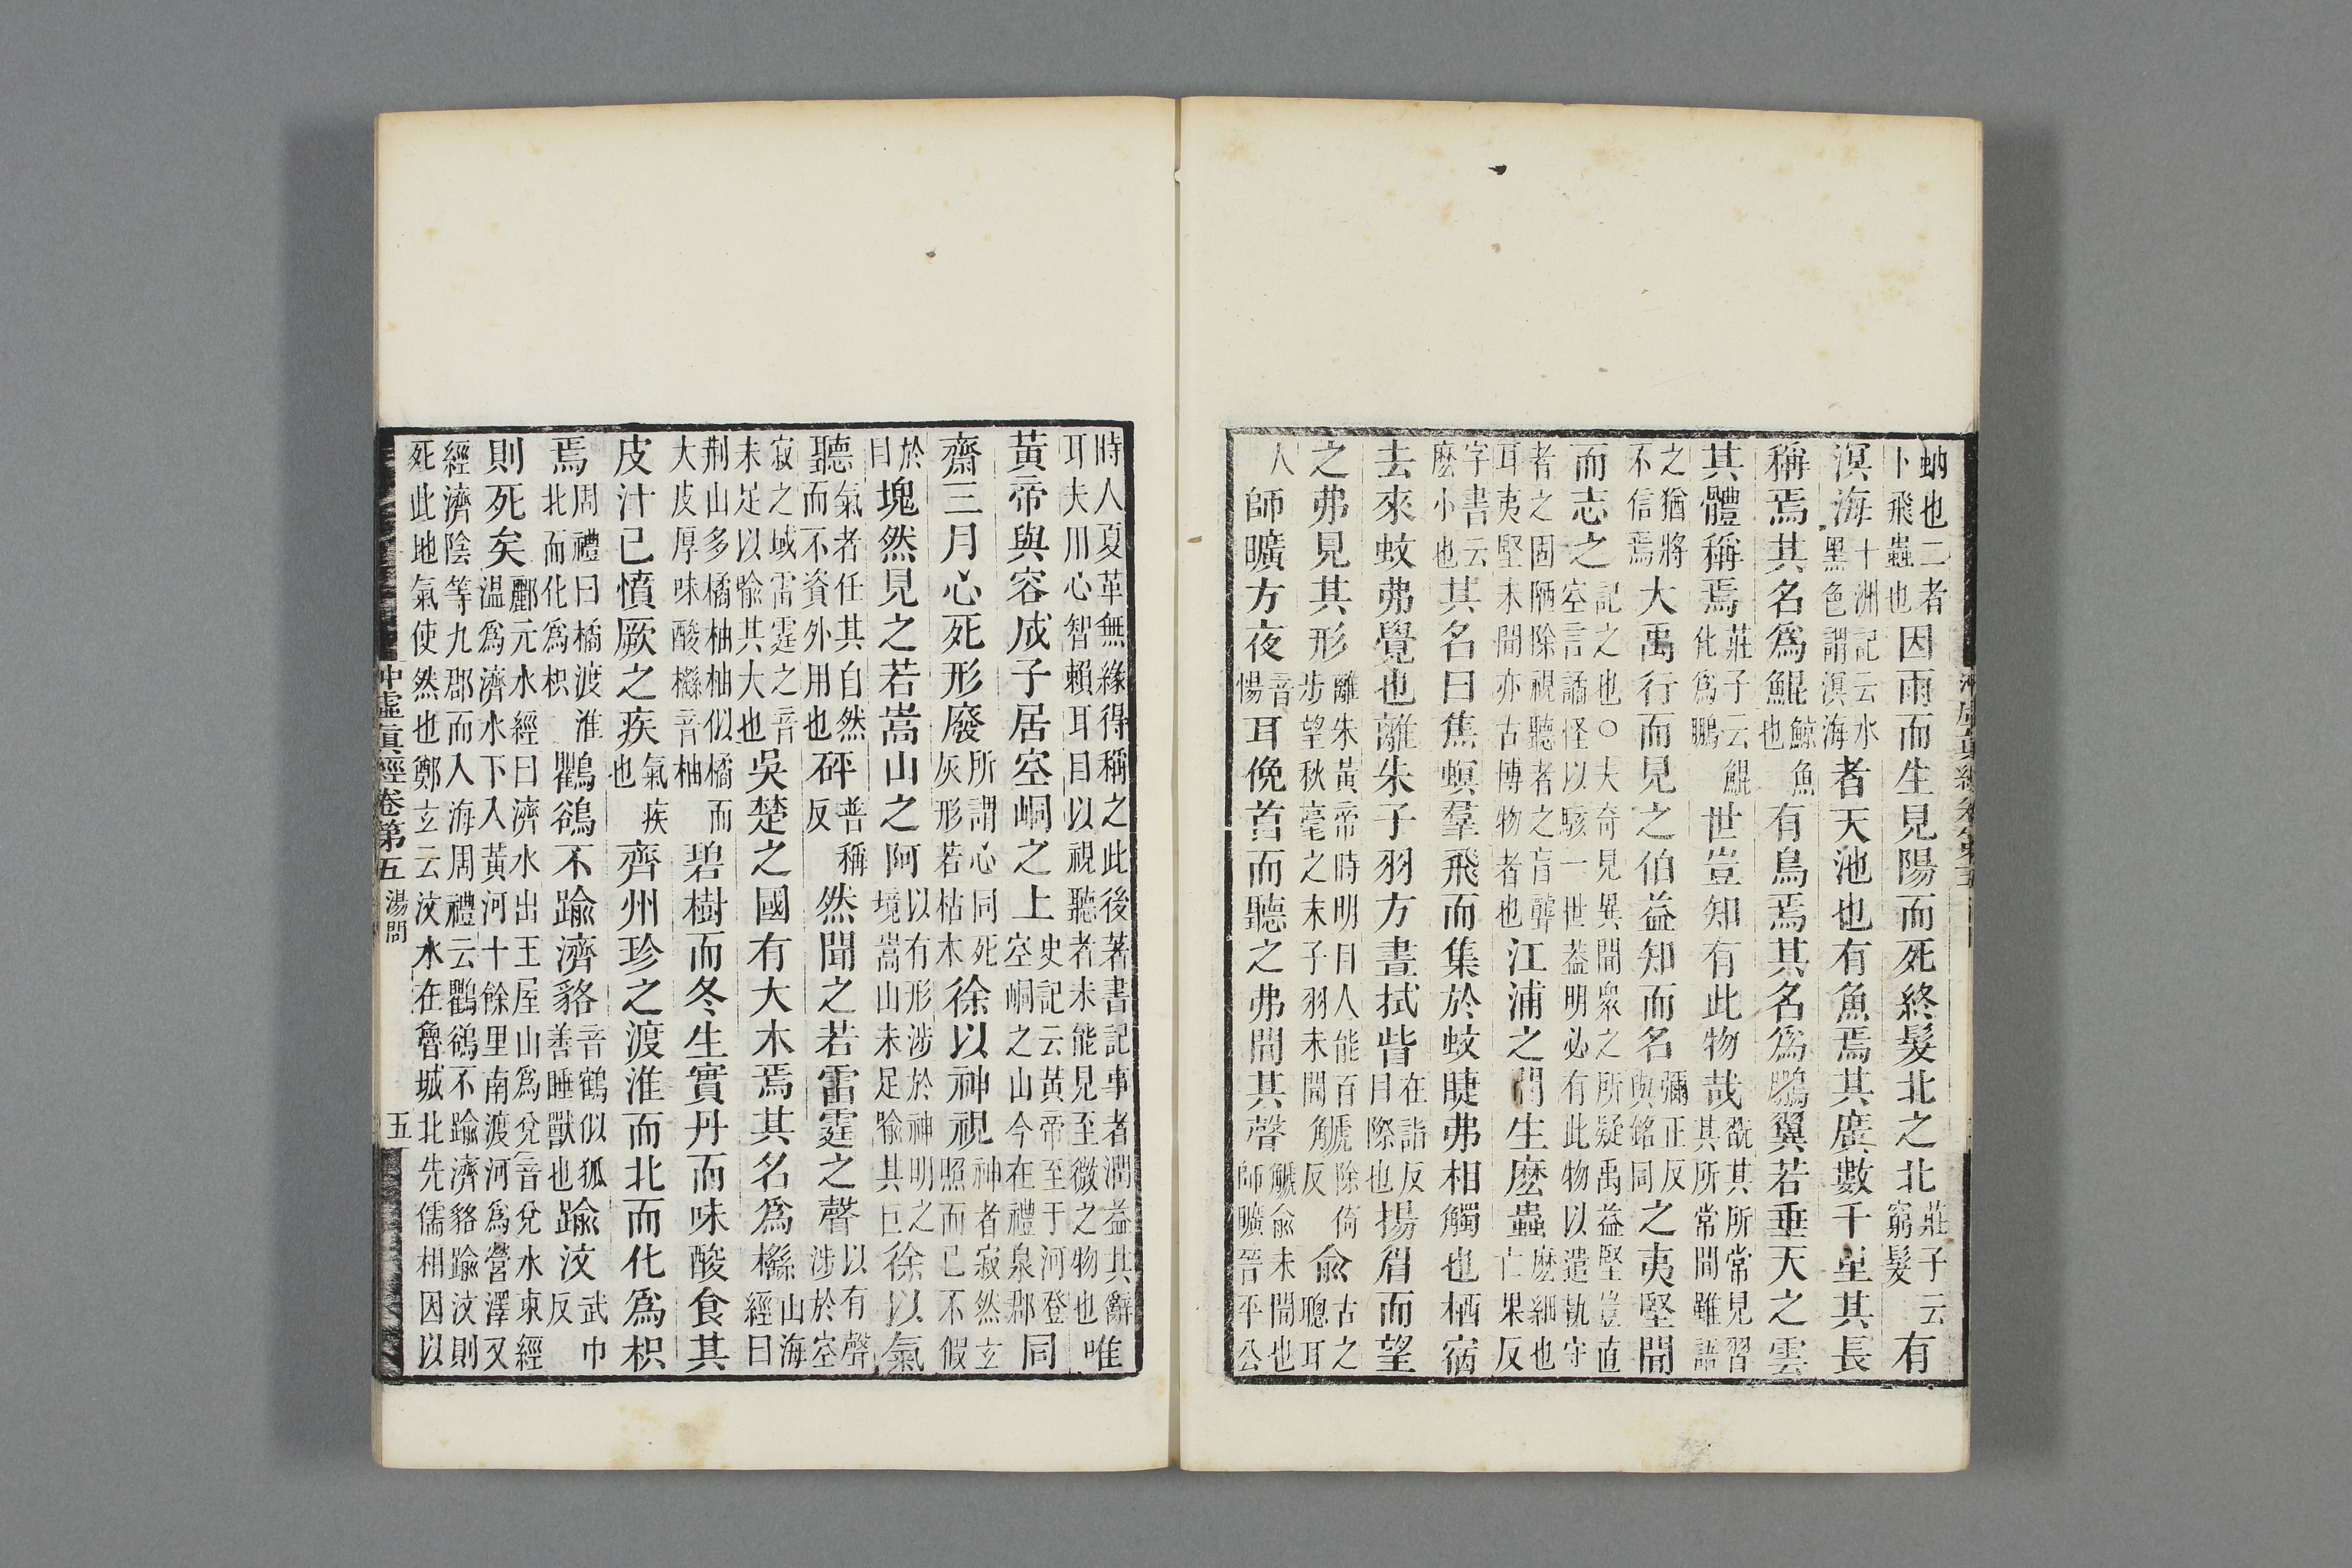 蚋也二者卜飛蟲也因雨而生見陽而死終髮北之北莊子云窮髮有
溟海十洲記云水黑色謂溟海者天池也有魚焉其廣數千里其長
稱焉其名爲鯤鯨魚也有鳥焉其名爲鵬翼若垂天之雲
其體稱焉莊子云鯤化爲鵬世豈知有此物哉翫其所常見習其所常聞雖語
之猶將不信焉大禹行而見之伯益知而名彌正反與銘同之夷堅聞
而志之記之也○夫奇見異聞衆之所疑禹益堅豈直空言譎怪以駭一世葢明必有此物以遣執守
者之固陋除視聽者之盲聾耳夷堅未聞亦古博物者也江浦之間生麽蟲麽細也亡果反
字書云麽小也其名曰焦螟羣飛而集於蚊睫弗相觸也栖宿
去來蚊弗覺也離朱子羽方晝拭眥在詣反目際也揚眉而望
之弗見其形離朱黃帝時明目人能百步望秋毫之末子羽未聞䚦除倚反俞古之聰耳
人師曠方夜音惕耳俛首而聽之弗聞其聲䚦俞未聞也師曠晉平公
時人夏革無緣得稱之此後著書記事者潤益其辭耳夫用心智賴耳目以視聽者未能見至微之物也唯
黃帝與容成子居空峒之上史記云黃帝至于河登空峒之山今在禮泉郡同
齋三月心死形廢所謂心同死灰形若枯木徐以神視神者寂然玄照而已不假
於目塊然見之若嵩山之阿以有形涉於神明之境嵩山未足喻其巨徐以氣
聽氣者任其自然而不資外用也砰普稱反然聞之若雷霆之聲以有聲涉於空
寂之域雷霆之音未足以喻其大也吳楚之國有大木焉其名爲櫾山海經曰
荆山多橘柚柚似橘而大皮厚味酸櫾音柚碧樹而冬生實丹而味酸食其
皮汁已憤厥之疾氣疾也齊州珍之渡淮而北而化爲枳
焉周禮曰橘渡淮北而化爲枳鸜鵒不踰濟貉音鶴似狐善睡獸也踰汶武巾反
則死矣酈元水經曰濟水出王屋山爲兗音兗水東經温爲濟水下入黃河十餘里南渡河爲營澤又
經濟陰等九郡而入海周禮云鸜鵒不踰濟貉踰汶則死此地氣使然也鄭玄云汶水在魯城北先儒相因以
冲虛真經卷第五 湯問 五